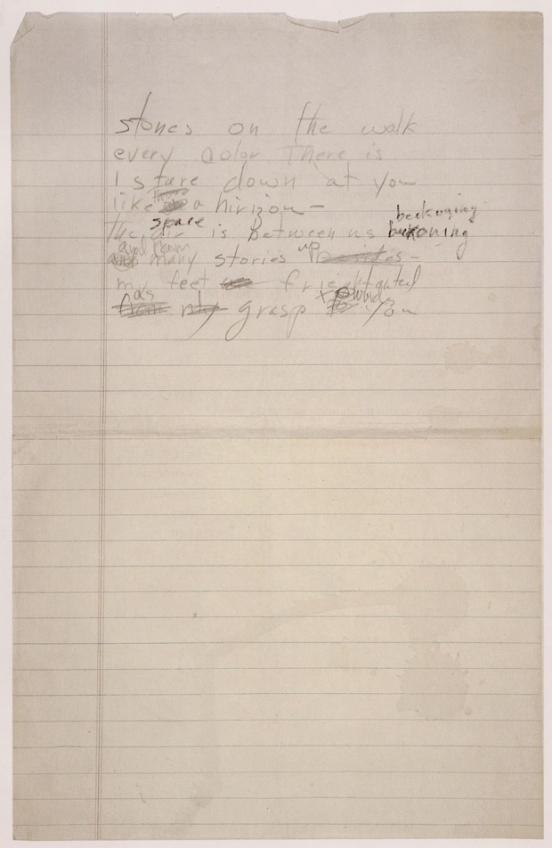 stones on the walk
every color there is
I stare down at you
like a hirizon—
beckoning
space
the air is between us beckoning
and
many stories up besides—
my feet frieghtgted
as
my grasp towards you